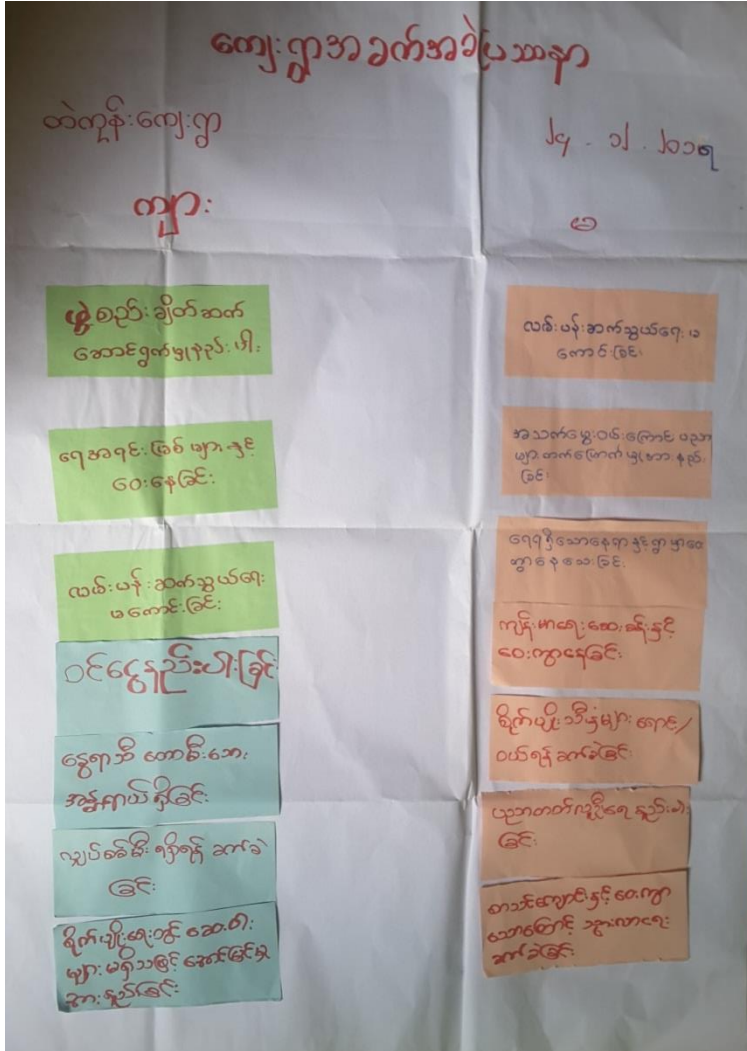 ကျေးရွာအခက်အခဲပြဿနာ
တဲကုန်းကျေးရွာ
၂၄ . ၁၂ . ၂၀၁၈
ကျား
မ
ဖွဲ့စည်းချိတ်ဆက်
ဆောင်ရွက်မှုနည်းပါး
ရေအရင်းမြစ်များနှင့်
ဝေးနေခြင်း
လမ်းပန်းဆက်သွယ်ရေး
မကောင်းခြင်း
ဝင်ငွေနည်းပါးခြင်း
နွေရာသီ တောမီးဘေး
အန္တရာယ်ရှိခြင်း
လျှပ်စစ်မီး ရရှိရန် ခက်ခဲ
ခြင်း
စိုက်ပျိုးရေးတွင် ဆေးဝါး
များ မရှိသဖြင့် အောင်မြင်မှု
အားနည်းခြင်း
လမ်းပန်းဆက်သွယ်ရေး မ
ကောင်းခြင်း
အသက်မွေးဝမ်းကြောင်း ပညာ
များတတ်မြောက်မှုအားနည်း
ခြင်း
ရေရရှိသောနေရာနှင့်ရွာမှာဝေး
ကွာနေသေးခြင်း
ကျန်းမာရေးဆေးခန်းနှင့်
ဝေးကွာနေခြင်း
စိုက်ပျိုးသီးနှံများ ရောင်း/
ဝယ်ရန်ခက်ခဲခြင်း
ပညာတတ်လူဦးရေ နည်းပါး
ခြင်း
စာသင်ကျောင်းနှင့်ဝေးကွာ
သောကြောင့် သွားလာရေး
ခက်ခဲခြင်း